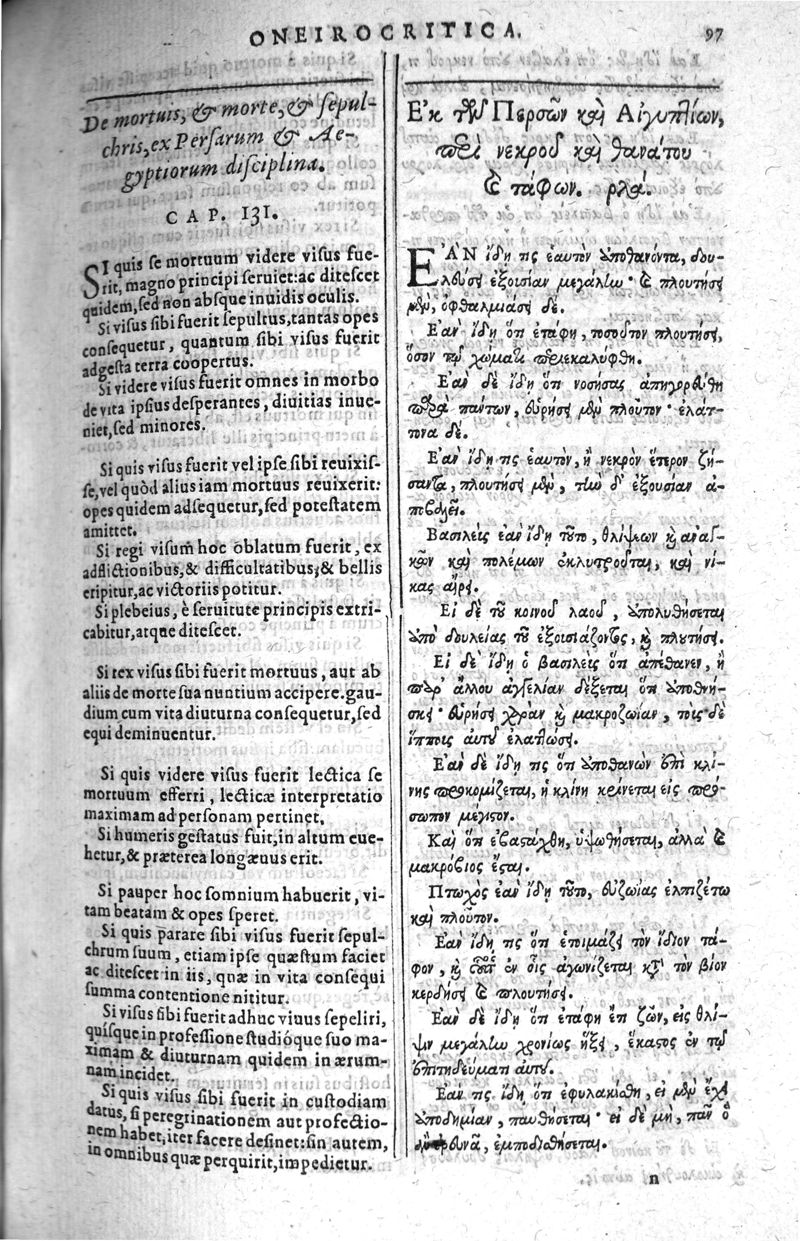 ONEIROCRITICA.
97
De mortuis, & morte, & sepul-
chris, ex Persarum & Ae-
gyptiorum disciplina.
CAP. 131.
SI quis se mortuum videre visus fue-
rit, magno principi seruiet: ac ditescet
quidem, sed non absque inuidis oculis.
Si visus sibi fuerit sepultus, tantas opes
consequetur, quantum sibi visus fuerit
adgesta terra coopertus.
Si videre visus fuerit omnes in morbo
de vita ipsius desperantes, diuitias inue-
niet, sed minores.
Si quis visus fuerit vel ipse sibi reuixis-
se, vel quòd alius iam mortuus reuixerit:
opes quidem adsequetur, sed potestatem
amittet.
Si regi visum hoc oblatum fuerit, ex
adflictionibus, & difficultatibus, & bellis
eripitur, ac victoriis potitur.
Si plebeius, è seruitute principis extri-
cabitur, atque ditescet.
Si rex visus sibi fuerit mortuus, aut ab
aliis de morte sua nuntium accipere. gau-
dium cum vita diuturna consequetur, sed
equi deminuentur.
Si quis videre visus fuerit lectica se
mortuum efferri, lecticæ interpretatio
maximam ad personam pertinet.
Si humeris gestatus fuit, in altum eue-
hetur, & præterea longæuus erit.
Si pauper hoc somnium habuerit, vi-
tam beatam & opes speret.
Si quis parare sibi visus fuerit sepul-
chrum suum, etiam ipse quæstum faciet
ac ditescet in iis, quæ in vita consequi
summa contentione nititur.
Si visus sibi fuerit adhuc viuus sepeliri,
quisque in professione studióque suo ma-
ximam & diuturnam quidem in ærum-
nam incidet.
Si quis visus sibi fuerit in custodiam
datus, si peregrinationem aut profectio-
nem habet, iter facere desinet: sin autem,
in omnibus quæ perquirit, impedietur.
Ἐκ τῶν Περσῶν καὶ Αἰγυπτίων,
περὶ νεκροῦ καὶ θανάτου
καὶ τάφων. ρλά.
ΕΑΝ ἴδῃ τις ἑαυτὸν ἀποθανόντα, δου-
λεύσει ἐξουσίαν μεγάλην· καὶ πλουτήσει
μὲν, ὀφθαλμιάσει δὲ.
Ἐὰν ἴδῃ ὅτι ἐτάφη, τοσοῦτον πλουτήσει,
ὅσον τῷ χώματι περιεκαλύφθη.
Ἐὰν δὲ ἴδῃ ὅτι νοσήσας ἀπηγορεύθη
παρὰ πάντων, εὑρήσει μὲν πλοῦτον· ἐλάτ-
τονα δὲ.
Ἐὰν ἴδῃ τις ἑαυτὸν, ἢ νεκρὸν ἕτερον ζή-
σαντα, πλουτήσει μὲν, τὴν δ' ἐξουσίαν ἀ-
ποβαλεῖ.
Βασιλεὺς ἐὰν ἴδῃ τοῦτο, θλίψεων καὶ ἀναγ-
κῶν καὶ πολέμων ἐκλυτροῦται, καὶ νί-
κας αἴρει.
Εἰ δὲ τοῦ κοινοῦ λαοῦ, ἀπολυθήσεται
ἀπὸ δουλείας τοῦ ἐξουσιάζοντος, καὶ πλουτήσει.
Εἰ δὲ ἴδῃ ὁ βασιλεὺς ὅτι ἀπέθανεν, ἢ
παρ' ἄλλου ἀγγελίαν δέξεται ὅτι ἀποθνή-
σκει· εὑρήσει χαρὰν καὶ μακροζωίαν, τοῖς δὲ
ἵπποις αὐτοῦ ἐλαττώσει.
Ἐὰν δὲ ἴδῃ τις ὅτι ἀποθανὼν ἐπὶ κλί-
νης προκομίζεται, ἡ κλίνη κρίνεται εἰς πρό-
σωπον μέγιστον.
Καὶ ὅτι ἐβαστάχθη, ὑψωθήσεται, ἀλλὰ καὶ
μακρόβιος ἔσται.
Πτωχὸς ἐὰν ἴδῃ τοῦτο, εὐζωίας ἐλπιζέτω
καὶ πλοῦτον.
Ἐὰν ἴδῃ τις ὅτι ἑτοιμάζει τὸν ἴδιον τά-
φον, καὶ αὐτὸς ἐν οἷς ἀγωνίζεται κατὰ τὸν βίον
κερδήσει καὶ πλουτήσει.
Ἐὰν δὲ ἴδῃ ὅτι ἐτάφη ἔτι ζῶν, εἰς θλί-
ψιν μεγάλην χρονίως ἥξει, ἕκαστος ἐν τῷ
ἐπιτηδεύματι αὐτοῦ.
Ἐάν τις ἴδῃ ὅτι ἐφυλακίσθη, εἰ μὲν ἔχει
ἀποδημίαν, παυθήσεται· εἰ δὲ μὴ, πᾶν ὃ
διερευνᾷ, ἐμποδισθήσεται.
n